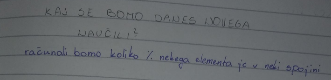 KAJ SE BOMO DANES NOVEGA
NAUČILI?
računali bomo koliko % nekega elementa je v neki spojini